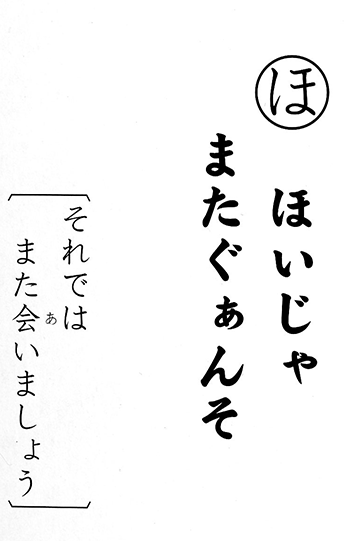 ほ
ほいじゃ
またぐぁんそ
それでは
また会いましょう
あ